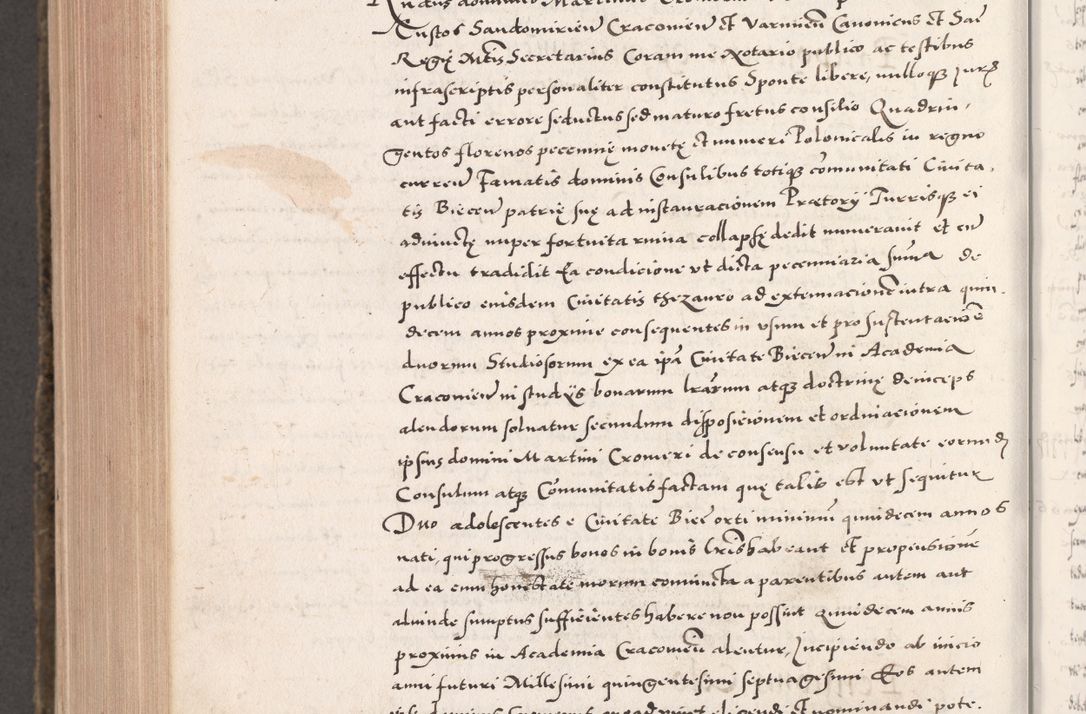 Custos Sandomirien Cracovien et Varmien Canonicus et Sac
Regię Mtis Secretarius Coram me Notario publico ac testibus
infrascriptis personaliter constitutus Sponte libere, nulloque Juris
aut facti errore seductus sed maturo fretus consilio Quadrin,
gentos florenos pecunnię monetę et numeri Polonicalis in regno
curren Famatis dominis Consulibus totique comunitati Civita,
tis Biecen patrię suę ad instauracionem Prætorij Turrisque ei
adiunctę nuper fortuita ruina collapsę dedit numeravit et cu
effectu tradidit Ea condicione ut dicta pecunniaria suma de
publico eiusdem Civitatis thezauro ad extenuacione intra quin,
decem annos proxime consequentes in usum et pro sustentacione
duorum Studiosorum ex ea ipa Civitate Biecen in Academia
Cracovien in studijs bonarum lrarum atque doctrinę deinceps
alendorum solvatur secundum disposicionem et ordinacionem
ipsius domini Martini Cromeri de consensu et voluntate eorund
Consulum atque Comunitatis factam quę talis est ut sequitur
Duo adolescentes e Civitate Biec orti minimu quindecem annos
nati, qui progressus bonos in bonis lris habeant et propensione
ad ea cum honestate morum coniuncta a parentibus autem aut
aliunde sumptus sufficientes habere non possint Quindecem annis
proximis in Academia Cracovien alentur, Incipiendo ab inicio
anni futuri Millesimi quingentesimi septuagesimi Eos autem